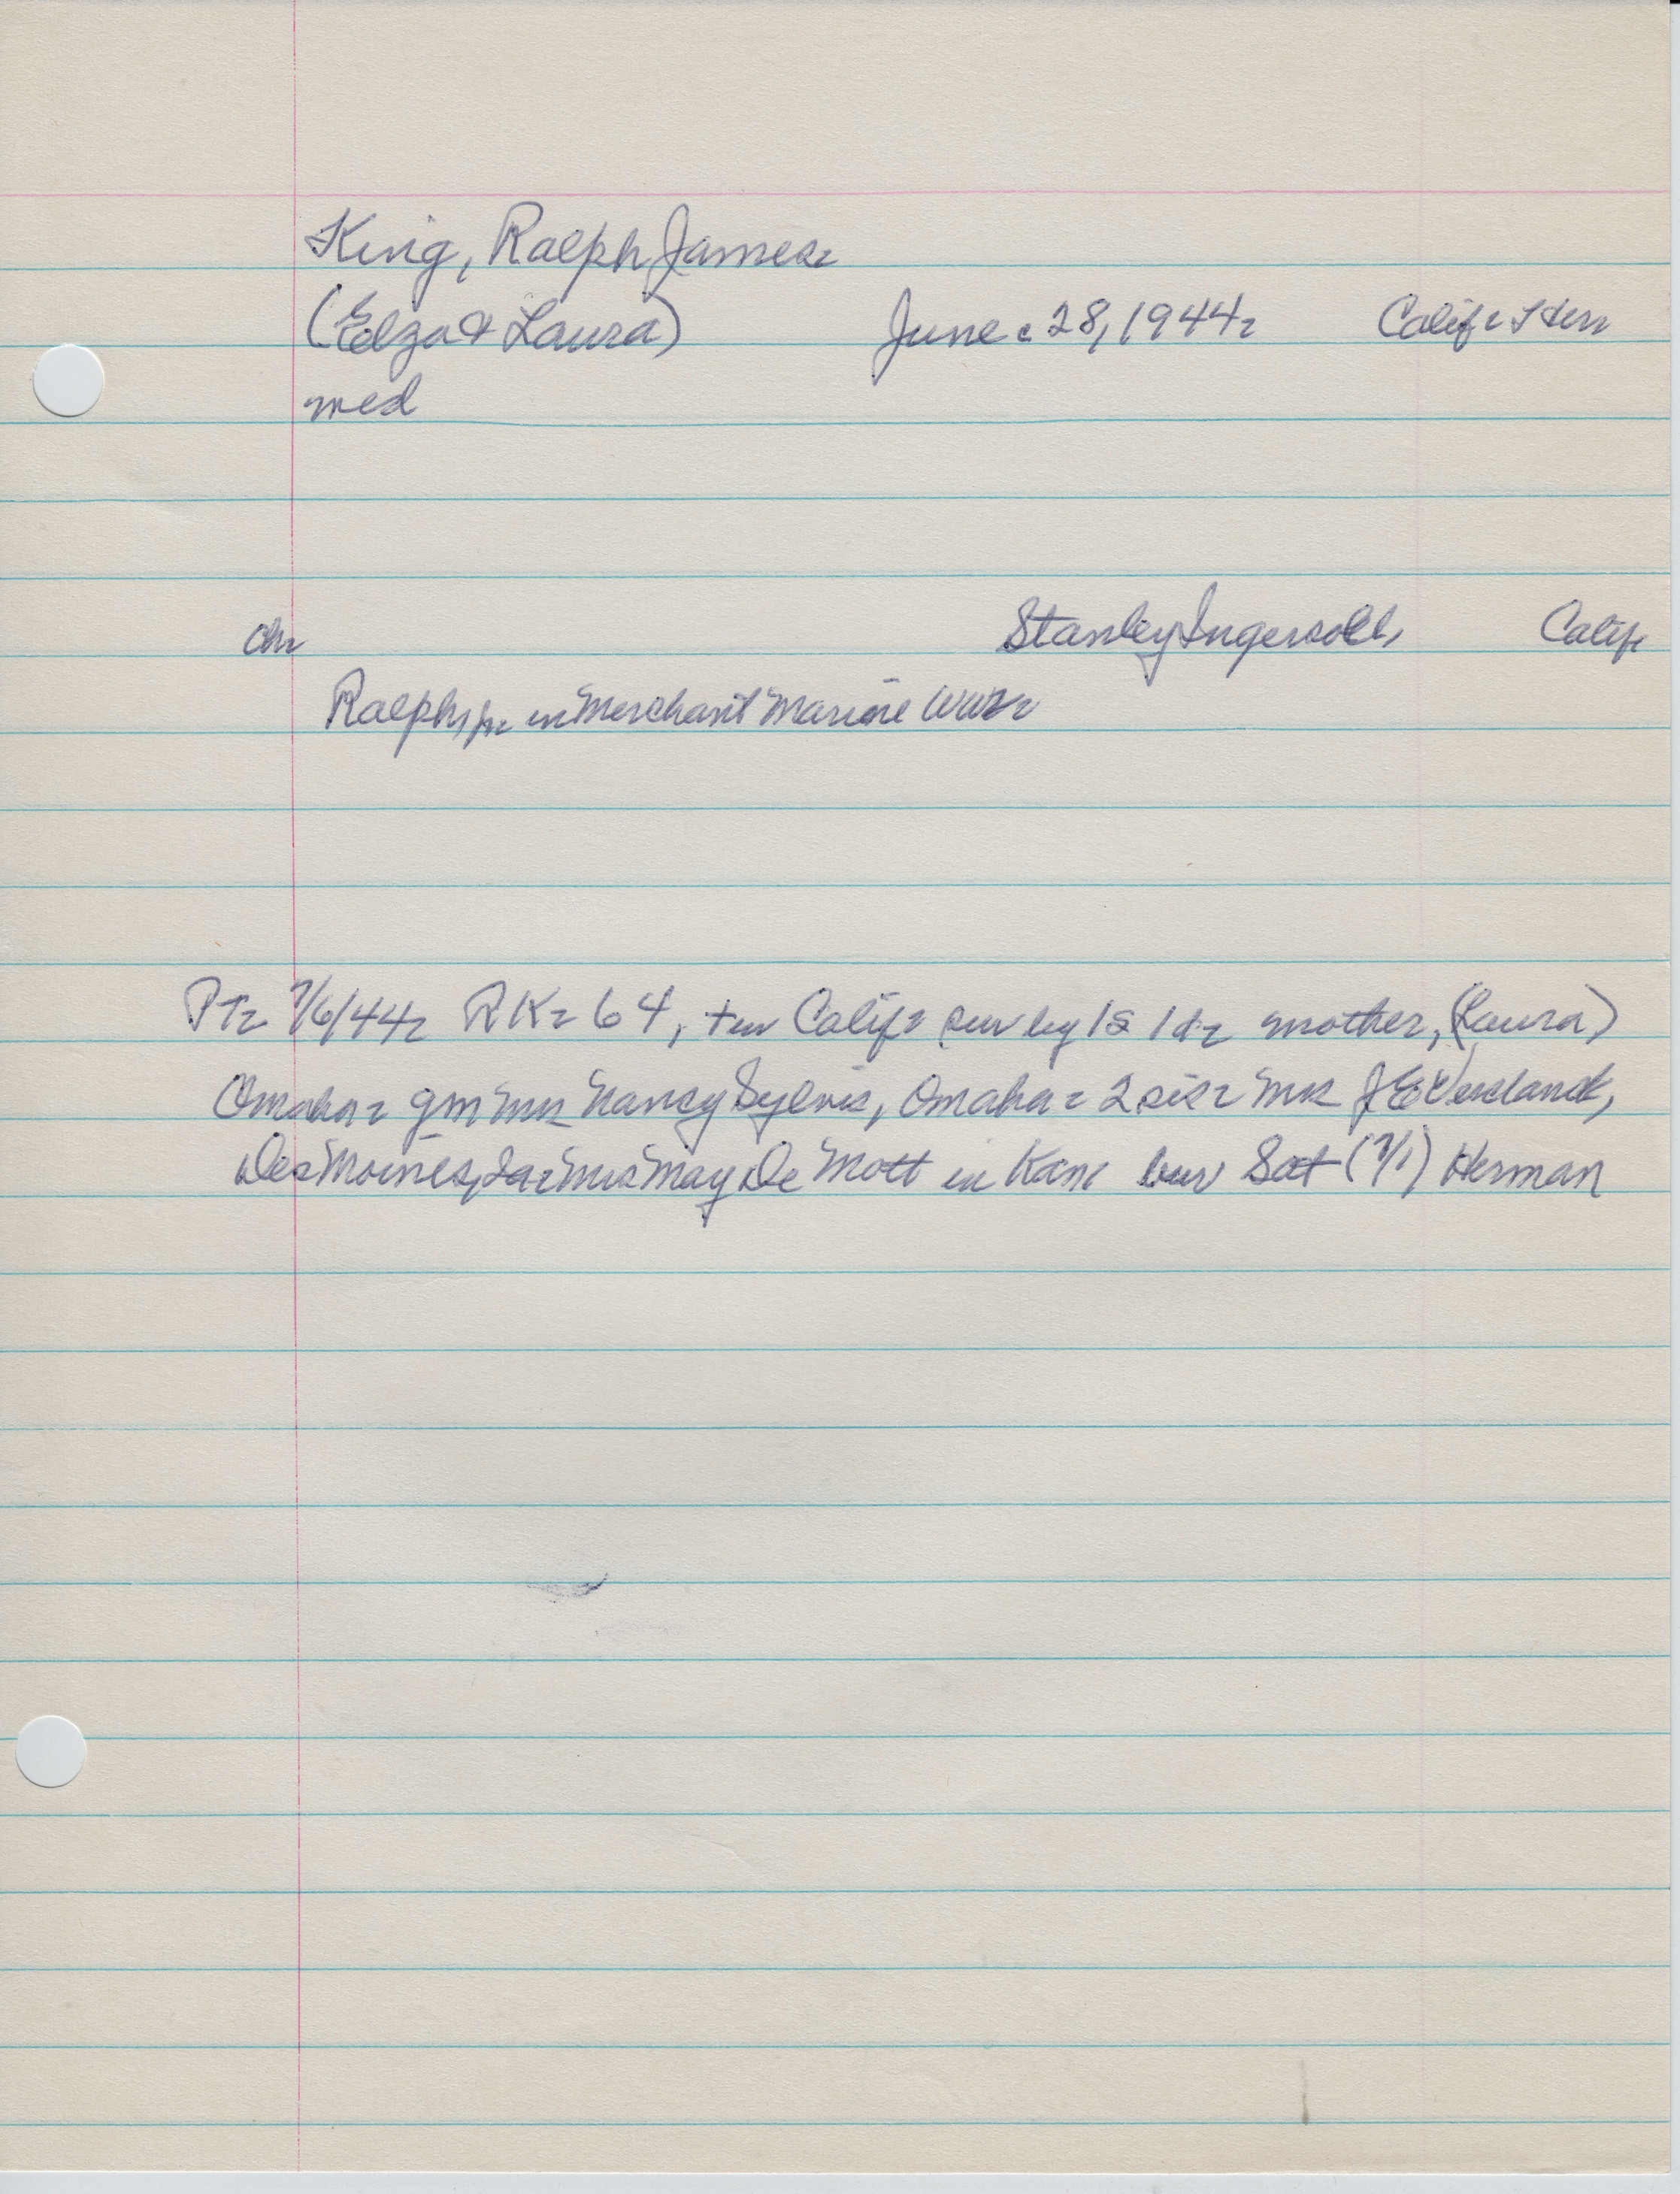 King, Ralph James.
(Elza & Laura) June. 28, 1944. Calif. Hern
med
Chr Stanley Ingersoll, Calif.
Ralph, jr. in Merchant Marine WW2.
PT. 7/6/44. RK. 64, + in Calif. sur by 1s 1d. mother, (Laura)
Omaha. gm Mrs Nancy Sylvis, Omaha. 2 sis. Mrs J E
Des Moines, Ia. Mrs May De Mott in Kans bur Sat (7/1) Herman